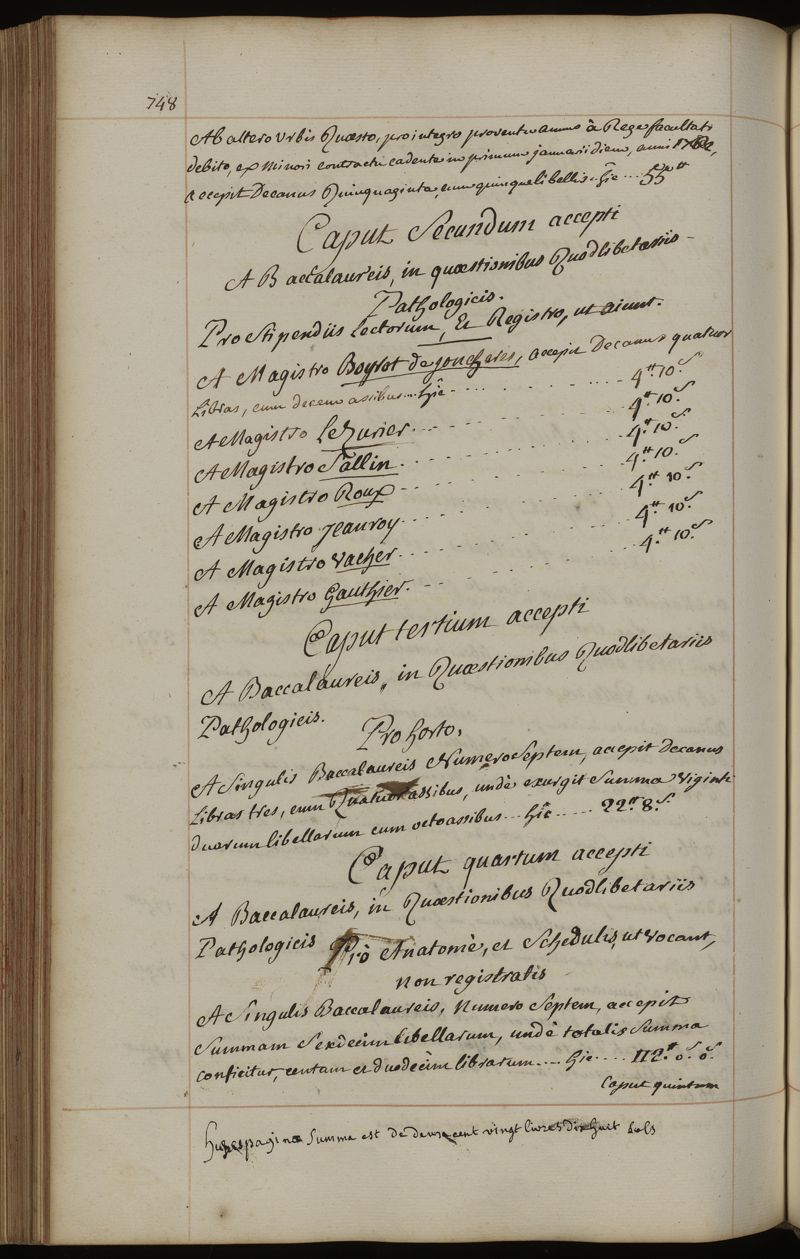 748
Ab altero Urbis Quæsto, pro integro proventu annuo à Rege facultati
debito, ex minori contractu cadente in primum januarii diem, anni
accepit Decanus Quinquaginta, cum quinque libellis. hîc ... 55ᵗᵗ
Caput Secundum accepti
A Baccalaureis, in quæstionibus Quodlibetariis
Pathologicis.
Pro Stipendiis Lectorum, Et Registro, ut aiunt.
A Magistro Boyrot de joucheres, accepit Decanus quatuor
Libras, cum decem assibus... hîc ... 4ᵗᵗ 10.ˢ
A Magistro Le Zurier ... 4ᵗᵗ 10.ˢ
A Magistro Sallin ... 4ᵗᵗ 10.ˢ
A Magistro Roux ... 4ᵗᵗ 10.ˢ
A Magistro Jeauroy ... 4ᵗᵗ 10.ˢ
A Magistro Vacher ... 4ᵗᵗ 10.ˢ
A Magistro Gauthier ... 4ᵗᵗ 10.ˢ
Caput tertium accepti
A Baccalaureis, in Quæstionibus Quodlibetariis
Pathologicis.
Pro horto,
A Singulis Baccalaureis Numero Septem, accepit Decanus
Libras tres, cum Quatuor assibus, undè exurgit Summa Viginti
duarum libellarum cum octo assibus ... hîc ... 22ᵗᵗ 8.ˢ
Caput quartum accepti
A Baccalaureis, in Quæstionibus Quodlibetariis
Pathologicis Pro Anatome, et Schedulis, ut vocant,
non registratis
A Singulis Baccalaureis, Numero Septem, accepit
Summam Sexdecim libellarum, undè totalis Summa
conficitur, centum et duodecim librarum ... hîc ... 112ᵗᵗ 0.ˢ 0.ᵈ
Caput quintum
hujus paginæ Summa est de deux cent vingt livres dix huit sols